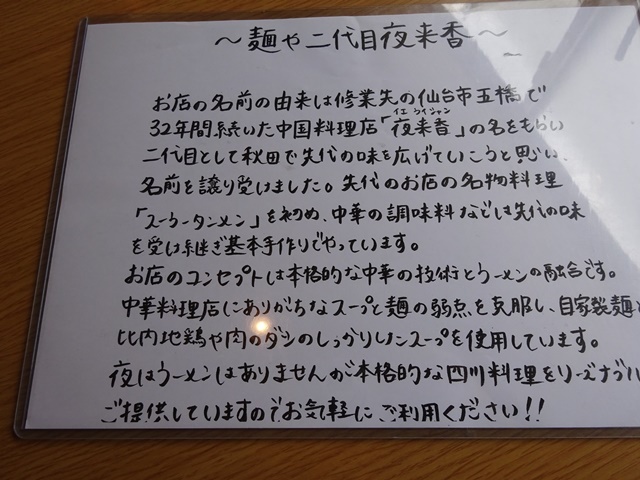 ～麺や二代目夜来香～
お店の名前の由来は修業先の仙台市五橋で
イエ ライシャン
32年間続いた中国料理店「夜来香」の名をもらい
二代目として秋田で先代の味を広げていこうと思い、
名前を譲り受けました。先代のお店の名物料理
「スーラータンメン」を初め、中華の調味料などは先代の味
を受け継ぎ基本手作りでやっています。
お店のコンセプトは本格的な中華の技術とラーメンの融合です。
中華料理店にありがちなスープと麺の弱点を克服し、自家製麺と
比内地鶏や肉のダシのしっかりしたスープを使用しています。
夜はラーメンはありませんが本格的な四川料理をリーズナブル
ご提供していますのでお気軽にご利用ください!!